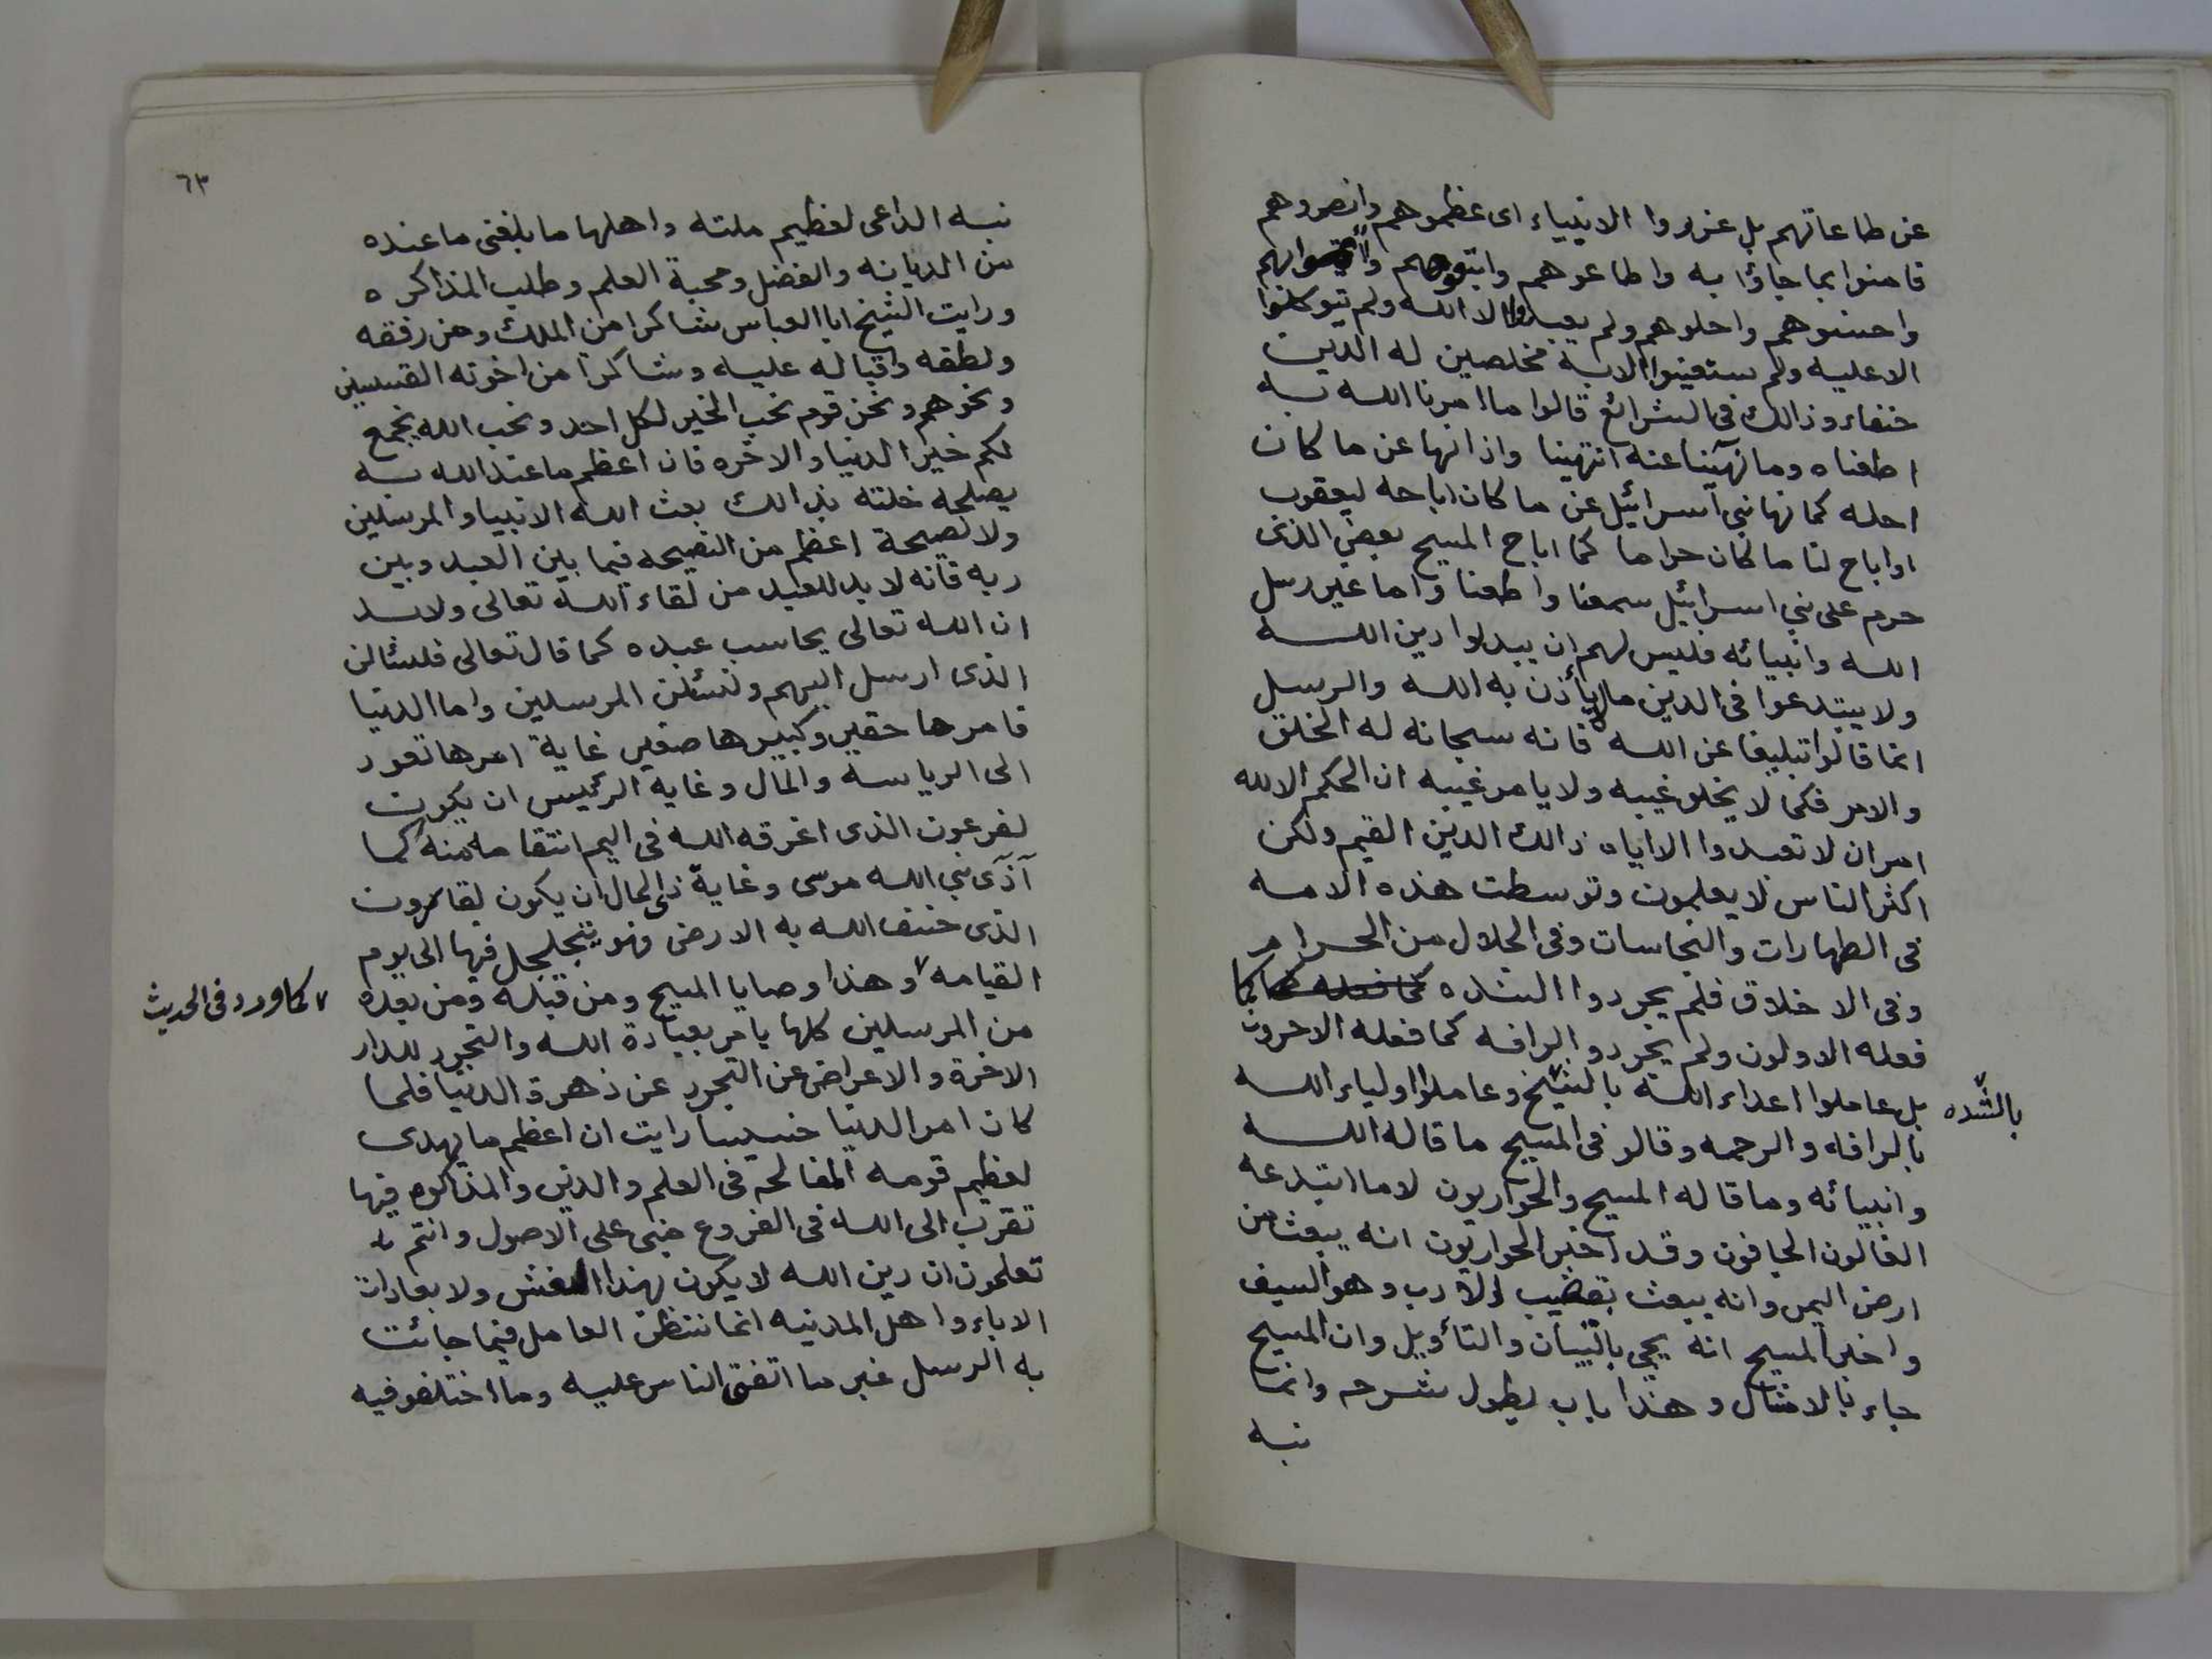 عن طاعاتهم بل عزروا الانبياء اى عظموهم وانصروهم
فامنوا بما جاؤا به واطاعوهم واتبعوهم
واحبوهم واحلوهم ولم يعبدوا الا الله ولم يتوكلوا
الا عليه ولم ستعينوا الا به مخلصين له الدين
حنفاء وذالك فى الشرائع قالوا ما امرنا الله به
اطعناه وما نهينا عنه انتهينا واذا نهانا عن ما كان
احله كما نهانبى اسرائيل عن ما كان اباحه ليعقوب
او اباح لنا ما كان حراما كما اباح المسيح بعض الذى
حرم على بنى اسرائيل سمعنا واطعنا واما غير رسل
الله وانبيائه فليس لهم ان يبدلوا دين الله
ولا يبتدعوا فى الدين مالم يأذن به الله والرسل
انما قالوا تبليغا عن الله فانه سبحانه له الخلق
والامر فكما لا يخلق غيره ولا يامر غيره ان الحكم الا لله
امر ان لا تعبدوا الا اياه ذالك الدين القيم ولكن
اكثر الناس لا يعلمون وتوسطت هذه الامه
فى الطهارات والنجاسات وفى الحلال من الحرام
وفى الاخلاق فلم يجردوا الشده كما
فعله الاولون ولم يجردوا الرافه كما فعله الاخرون
بل عاملوا اعداء الله وعاملوا اولياء الله
بالشده
بالرافه والرحمه وقالو فى المسيح ما قاله الله
وانبيائه وما قاله المسيح والحواريون لا ما ابتدعه
الغالون الجافون وقد اخبر الحواريون انه يبعث من
ارض اليمن وانه يبعث بقضيب الادب وهو السيف
واخبر المسيح انه يجى بالبيان والتأويل وان المسيح
جاء بالامثال وهذا باب يطول شرحه وانما
نبه
٦٣
نبه الداعى لعظيم ملته واهلها ما بلغنى ما عنده
من الديانه والفضل ومحبة العلم وطلب المذاكره
ورايت الشيخ ابا العباس شاكرا من الملك ومن رفقه
ولطفه واقباله عليه وشاكرا من اخوته القسسين
ونحوهم ونحن قوم نحب الخير لكل احد ونحب الله يجمع
لكم خير الدنيا والاخره فان اعظم ما عند الله به
يصلحه خلته بذالك بعث الله الانبيا والمرسلين
ولا نصيحة اعظم من النصيحه فيما بين العبد وبين
ربه فانه لا بد للعبد من لقاء الله تعالى ولابد
ان الله تعالى يحاسب عبده كما قال تعالى فلنسئالن
الذى ارسل اليهم ولنسئلن المرسلين واما الدنيا
فامرها حقير وكبيرها صغير غاية امرها تعود
الى الرياسه والمال وغاية الرئيس ان يكون
لفرعون الذى اغرقه الله فى اليم انتقاما منه كما
آذى نبى الله موسى وغاية ذى المال ان يكون لقارون
الذى خسف الله به الارض فهو يتجلجل فيها الى يوم
القيامه وهذا وصايا المسيح ومن قبله ومن بعده
كما ورد فى الحديث
من المرسلين كلها يامر بعبادة الله والتجرد للدار
الاخرة والاعراض عن التجرد عن زهرة الدنيا فلما
كان امر الدنيا خسيسا رايت ان اعظم ما يهدى
لعظيم قومه المفالحه فى العلم والدين والمذاكره فيها
تقرب الى الله فى الفروع مبنى على الاصول وانتم
تعلمون ان دين الله لا يكون بهذا ولا بعادات
الاباء واهل المدينه انما ننظر العامل فيما جائت
به الرسل غير ما اتفق الناس عليه وما اختلفو فيه